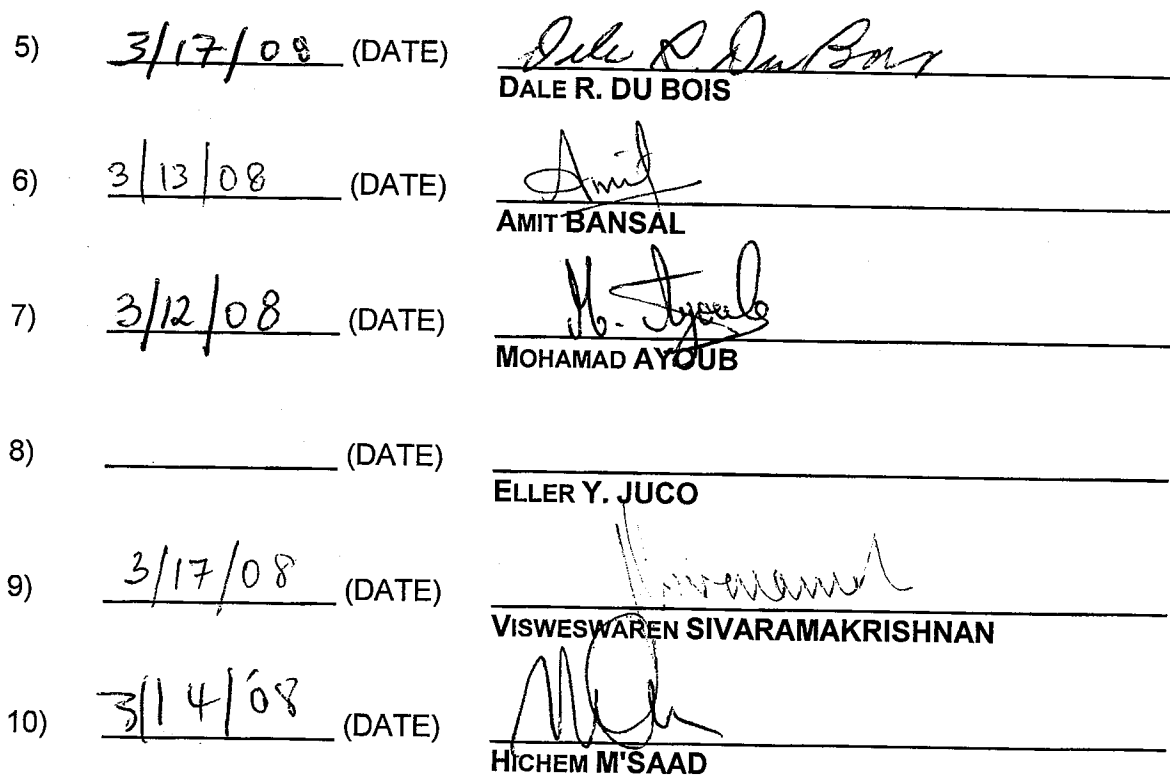 5) 3/17/08 (DATE) Dale R. Du Bois
DALE R. DU BOIS
6) 3/13/08 (DATE) Amit
AMIT BANSAL
7) 3/12/08 (DATE) M. Ayoub
MOHAMAD AYOUB
8) (DATE)
ELLER Y. JUCO
9) 3/17/08 (DATE)
VISWESWAREN SIVARAMAKRISHNAN
10) 3/14/08 (DATE)
HICHEM M'SAAD